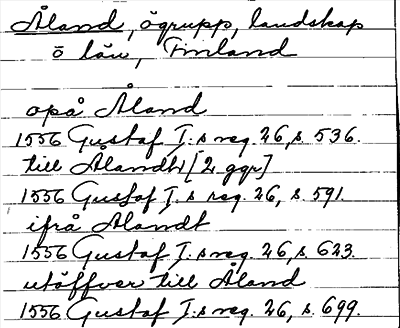 Åland, ögrupp, landskap
o län, Finland
opå Åland
1556 Gustaf I.s reg. 26, s. 536.
till Ålandh [2 ggr]
1556 Gustaf I.s reg. 26, s. 591.
ifrå Alandt
1556 Gustaf I.s reg. 26, s. 623.
utöffver till Åland
1556 Gustaf I.s reg. 26, s. 699.